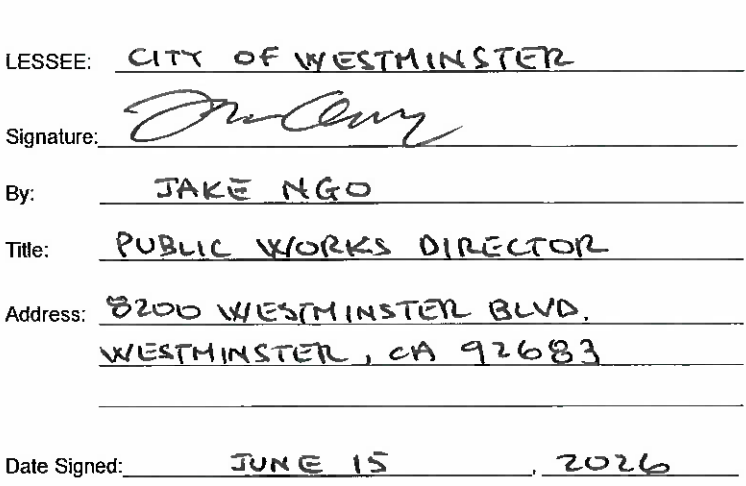 LESSEE: CITY OF WESTMINSTER
Signature:
By: JAKE NGO
Title: PUBLIC WORKS DIRECTOR
Address: 8200 WESTMINSTER BLVD.
WESTMINSTER, CA 92683
Date Signed: JUNE 15, 2026